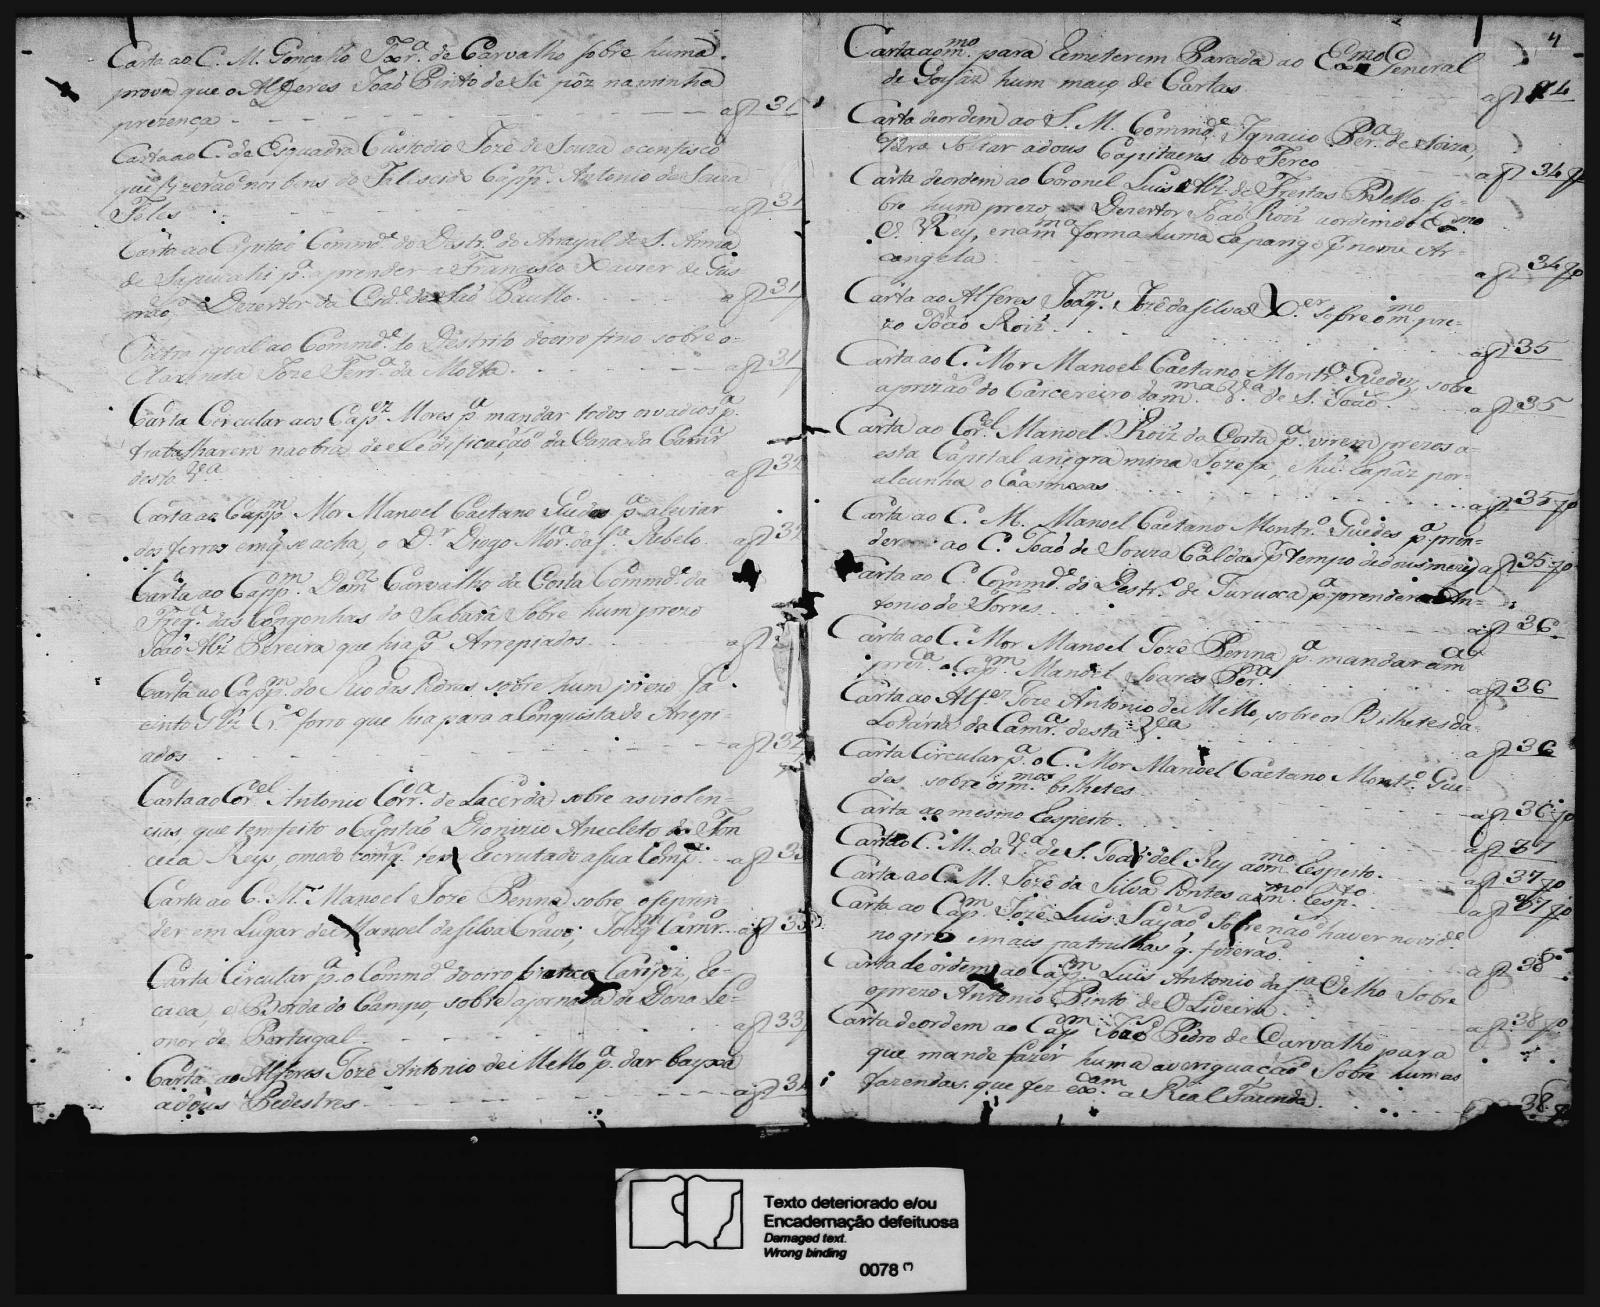 Carta ao C. M. Goncallo de Carvalho sobre huma
prova que o Alferes João Pinto de Sá pôz na minha
prezença - a f 31
Carta ao C. de Esquadra Custodio Jozé de Souza o confisco
que fizerão nos bens do Falescido Capp.m Antonio de Souza
Teles - a f 31
Carta ao Capitão Commd.e do Destr.o do Arrayal de S. Anna
de Sapucahi p.a aprender a Francisco Xavier de Gus
mão Dezertor da Cid.e de São Paullo. a f 31
Outra igoal ao Commd.e do Destrito do oiro fino sobre o
Jozé Ferr.a da Motta. a f 31
Carta Circular aos Cap.ez Mores p.a mandar todos os vadios p.a
trabalharem na obra de edificação da Caza da Camr.a
desta V.a a f 32
Carta ao Capp.m Mor Manoel Caetano Guedes p.a aleviar
dos ferros em q se acha, o D.r Diogo Per.a Rebelo. a f 32
Carta ao Capp.m Dom.oz Carvalho da Costa Commd.e da
Freg.a das Congonhas do Sabará sobre hum prezo
João Alz Pereira que hia p.a Arrepiados a f
Carta ao Capp.m do Rio das Pedras, sobre hum prezo Ja-
cinto forro que hia para a Conquista do Arrepi
ados - a f 32
Carta ao Cor.el Antonio Corr.a de Lacerda sobre as violen-
cias que tem feito o Capitão Dionizio Anecleto da Fon
ceca Reys, o modo com q. tem Recrutado a sua Comp.a - a f 33
Carta ao C. M. Manoel Jozé Penna sobre o se pren-
der em Lugar de Manoel da Silva Cravo, Joaq.m Camr.o a f 33
Carta Circular p.a o Commd.e do oiro branco Carijoz, Re-
caca, e Borda do Campo, sobre a jornada de Dona Le-
onor de Portugal - a f 33
Carta ao Alferes Jozé Antonio de Mello p.a dar bayxa
a dous Pedestres - a f 34
4
Carta ao m.mo para Remeterem Parada ao Ex.mo General
de Goyaz hum maço de Cartas a f 34
Carta de ordem ao S. M. Commd.e Ignacio Per.a de
para soltar a dous Capitaens do Terco a f 34
Carta de ordem ao Coronel Luis Alz de Freitas Bello so-
bre hum prezo Dezertor João Roiz a ordem do
V. Rey, e na m.ma forma huma Rapariga p nome Ar-
cangela a f 34
Carta ao Alferes Joaq.m Jozé da Silva X.er sobre o m.mo pre-
zo João Roiz - a f 35
Carta ao C. Mor Manoel Caetano Montr.o Guedes, sobre
a prizão do Carcereiro da m.ma V.a de S. João a f 35
Carta ao Cor.el Manoel Roiz da Costa p.a virem prezos a
esta Capital a negra mina Jozefa, e hu Rapaz por
alcunha o a f 35
Carta ao C. M. Manoel Caetano Montr.o Guedes p.a pren-
der ao C. João de Souza Caldas p.r tempo de dous mezes a f 35
Carta ao C. Commd.e do Destr.o de Juruoca p.a prender a An-
tonio de Torres. a f 36
Carta ao C. Mor Manoel Jozé Penna p.a mandar a m.a
prez.a o Cap.m Manoel Soares Per.a a f 36
Carta ao Alf.es Joze Antonio de Mello, sobre os Bilhetes da
Lotaria da Camr.a desta V.a a f 36
Carta Circular p.a o C. Mor Manoel Caetano Montr.o Gue-
des sobre os m.mos bilhetes a f 36
Carta ao mesmo Respeito. a f 37
Carta ao C. M. da V.a de S. João del Rey ao m.mo Respeito. a f 37
Carta ao C. M. Jozé da Silva Pontes ao m.mo Resp.to a f 37
Carta ao Cap.m Jozé Luis Sayão, Sobre não haver novid.e
no giro e mais patrulhas q. fizerão. a f 38
Carta de ordem ao Cap.m Luis Antonio da S.a Velho Sobre
o prezo Antonio Pinto de Oliveira. a f 38
Carta de ordem ao Cap.m João Pedro de Carvalho para
que mande fazer huma averiguação Sobre humas
fazendas que fez ex.am a Real Fazenda. 38
Texto deteriorado e/ou
Encadernação defeituosa
Damaged text.
Wrong binding
0078 (*)